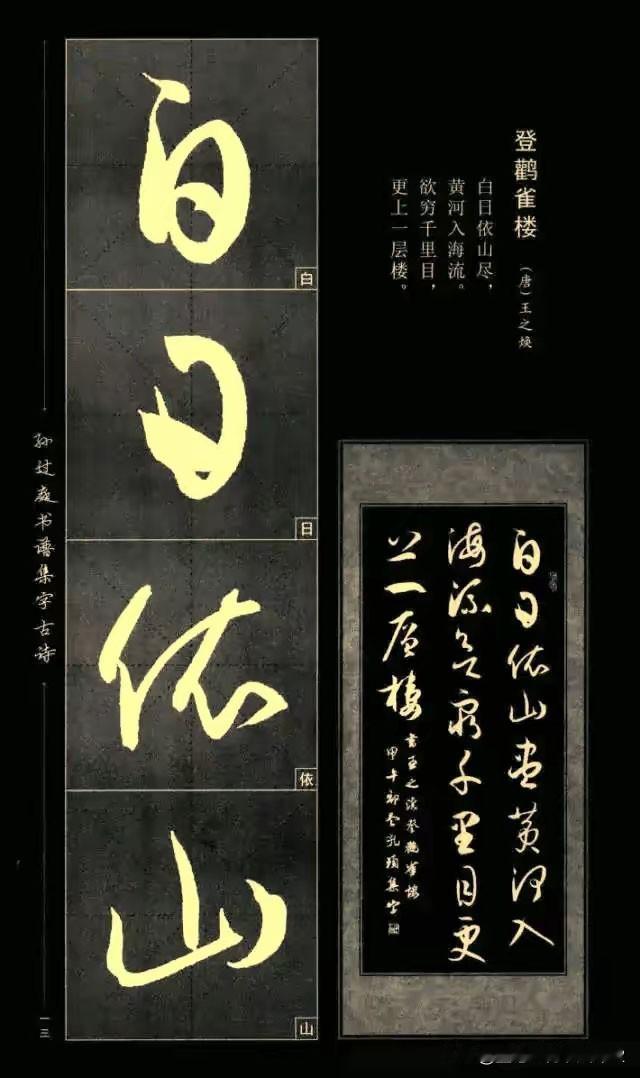 登鹳雀楼
（唐）王之焕
白日依山尽，
黄河入海流。
欲穷千里目，
更上一层楼。
白日依山
白
日
依
山
白日依山尽黄河入
海流欲穷千里目更
上一层楼
书王之涣登鹳雀楼
孙过庭书谱集字古诗
一三